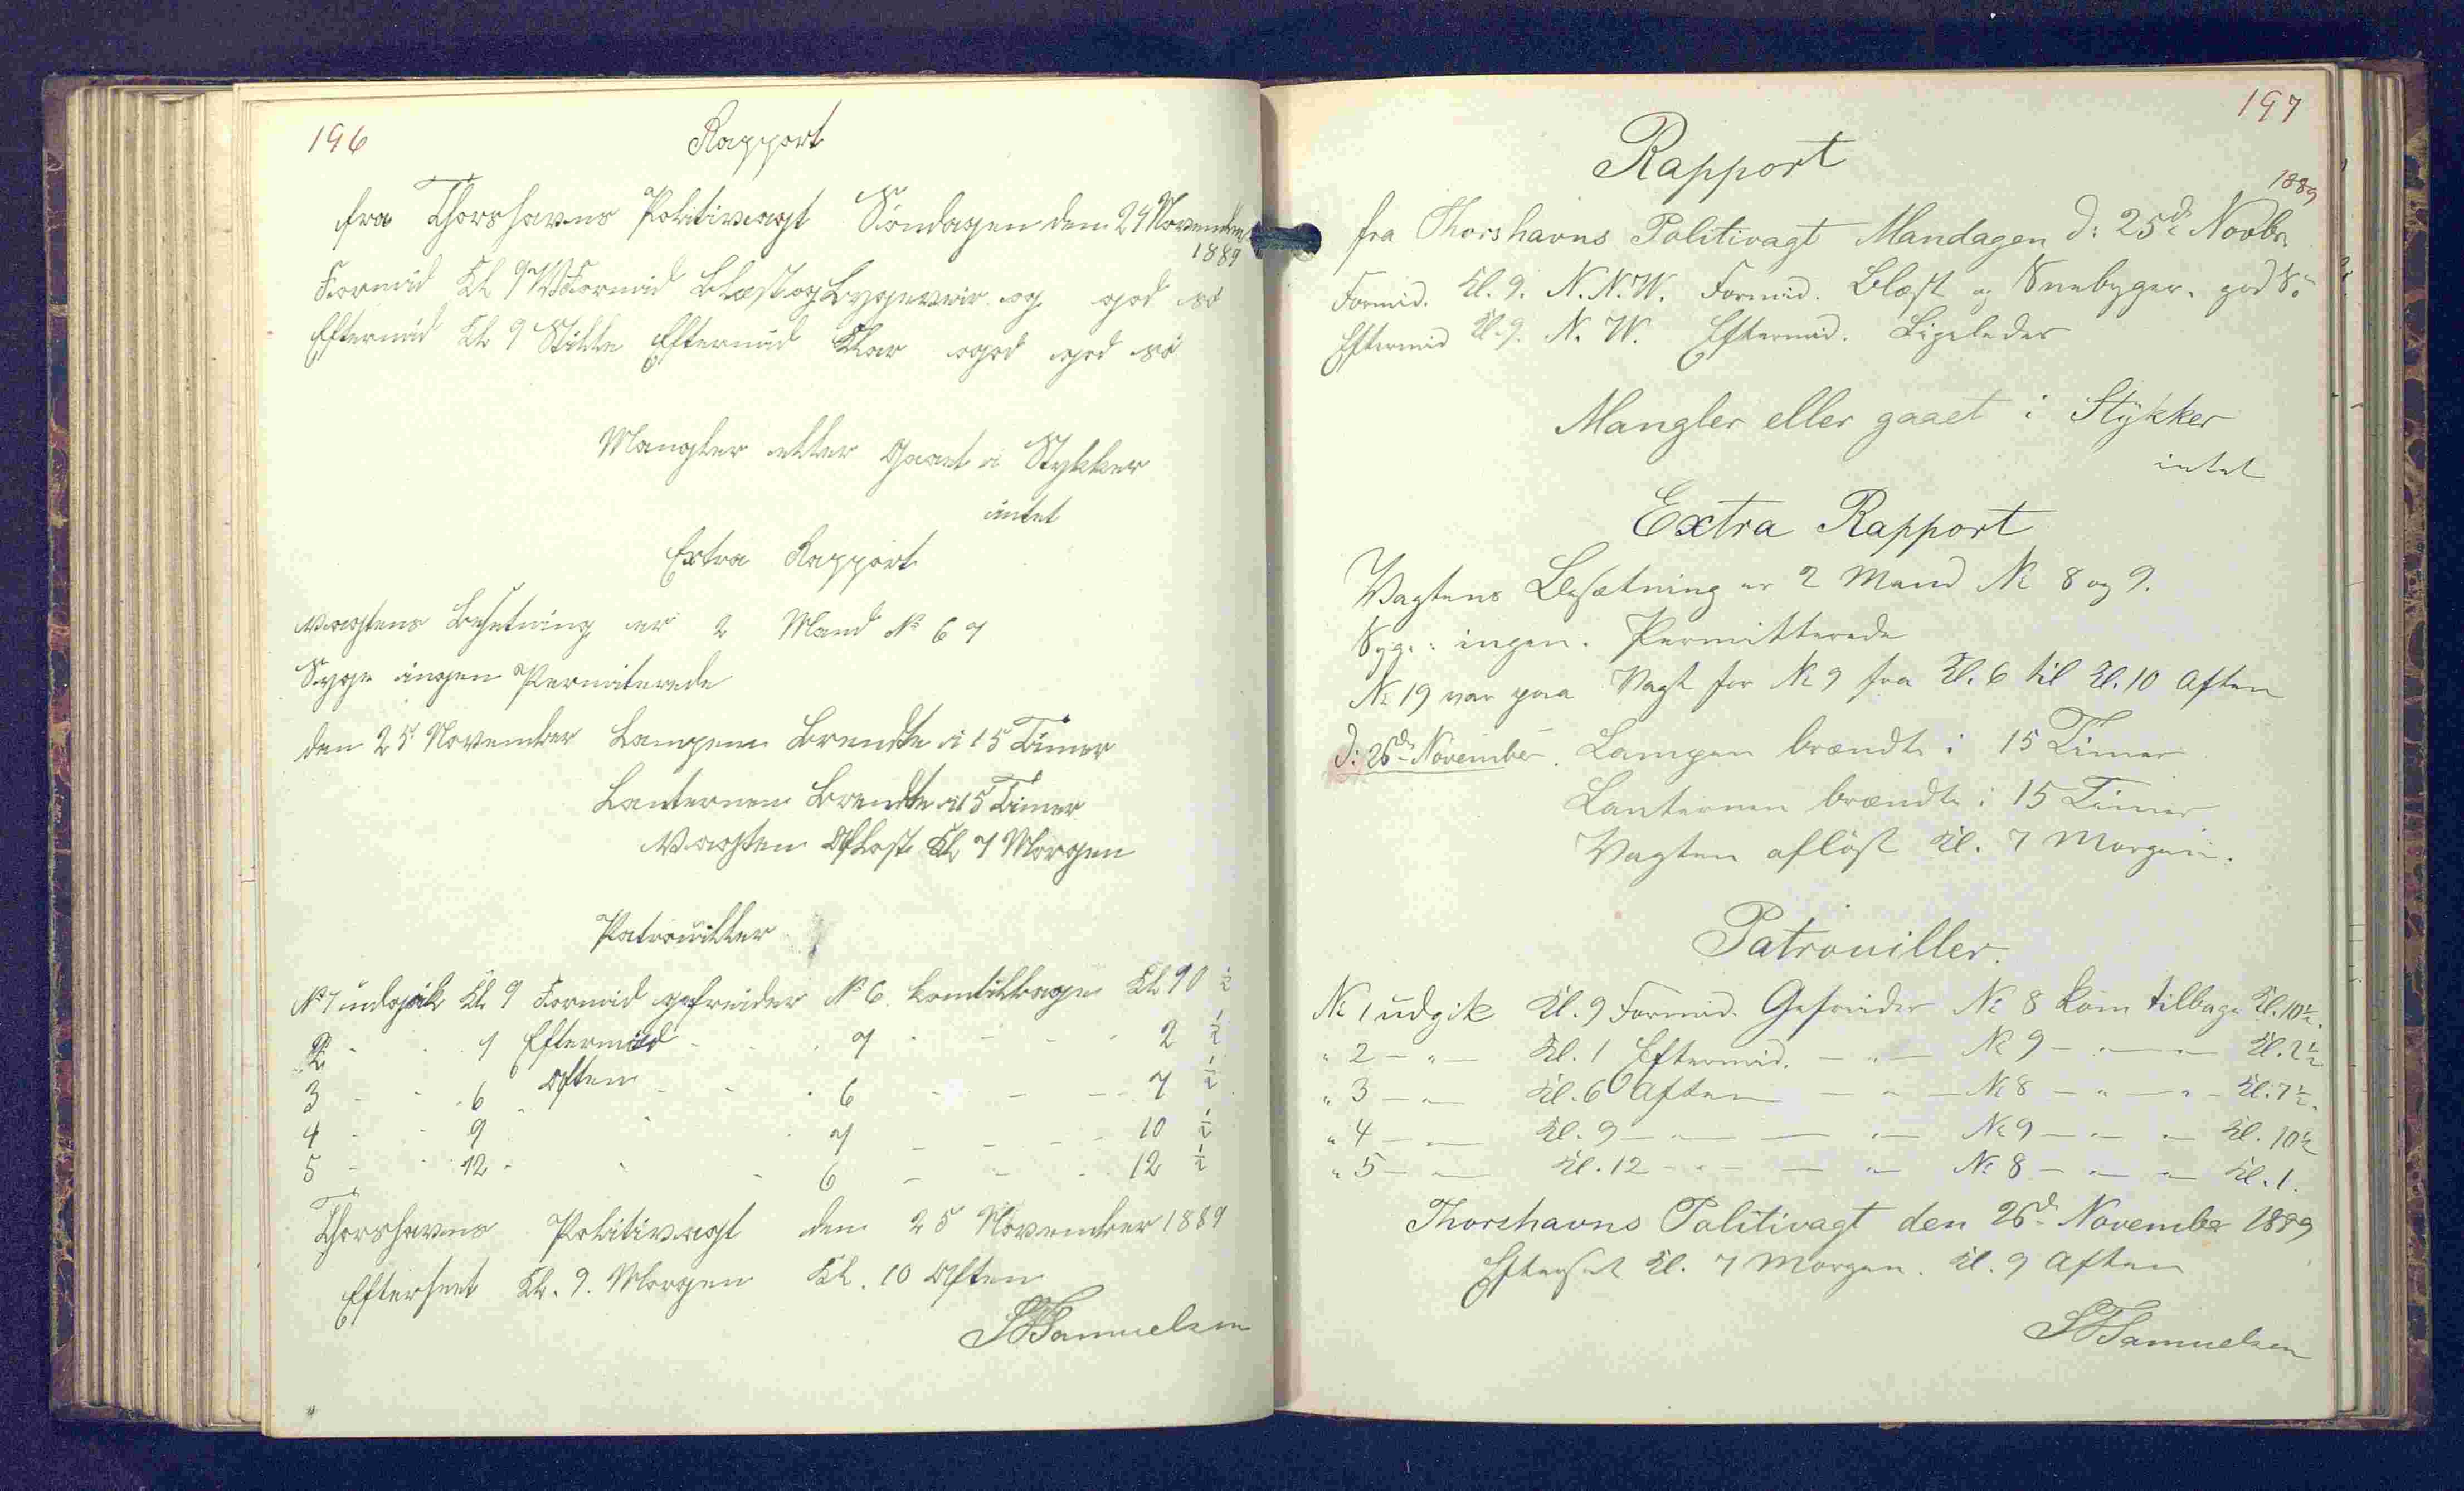 196
Rapport
fra Thorshavns Politivagt Söndagen den 24 November
1889
Formid Kl 9 W Formid Blæst og Bygeveir og god sö
Eftermid Kl 9 Stille Eftermid Klar og god sö
Mangler eller Gaaet i Stykker
intet
Extra Rapport
Vagtens Besetning er 2 Mand No 6 7
Syge ingen Permiterede
den 25 November Lampen Brendte i 15 Timer
Lanternen Brendte i 15 Timer
Vagten Aflöst Kl 7 Morgen
Patrouiller
No 1 udgik Kl 9 Formid gefreider No 6 kom tilbage Kl 10 ½
2 - - 1 Eftermid - - 7 - - - 2 ½
3 - - 6 Aften - - 6 - - - 7 ½
4 - - 9 - - 7 - - - 10 ½
5 - - 12 - - - 6 - - - 12 ½
Thorshavns Politivagt den 25 November 1889
Efterseet Kl. 9. Morgen Kl. 10 Aften
Samuelsen
197
Rapport
1889
fra Thorshavns Politivagt Mandagen d: 25de Novbr.
Formid. Kl. 9. N.N.W. Formid. Blæst og Snebyger. god Sö
Eftermid Kl. 9. N. W. Eftermid. Ligeledes
Mangler eller gaaet i Stykker
intet
Extra Rapport
Vagtens Besætning er 2 Mand No 8 og 9.
Syge: ingen. Permitterede
No 19 var paa Vagt for No 9 fra Kl. 6 til Kl. 10 Aften
d: 26de November. Lampen brændte i 15 Timer
Lanternen brændte i 15 Timer
Vagten aflöst Kl. 7 Morgen.
Patrouiller.
No 1 udgik Kl. 9 Formid. Gefreider No 8 kom tilbage Kl. 10½.
" 2 - " - Kl. 1 Eftermid. - " - No 9 - " - " - Kl. 2½
" 3 - " - Kl. 6 Aften - " - No 8 - " - " - Kl. 7½.
" 4 - " - Kl. 9 - " - - " - No 9 - " - " - Kl. 10½
" 5 - " - Kl. 12 - " - - " - No 8 - " - " - Kl. 1.
Thorshavns Politivagt den 26de November 1889
Efterset Kl. 7 Morgen. Kl. 9 Aften
Samuelsen